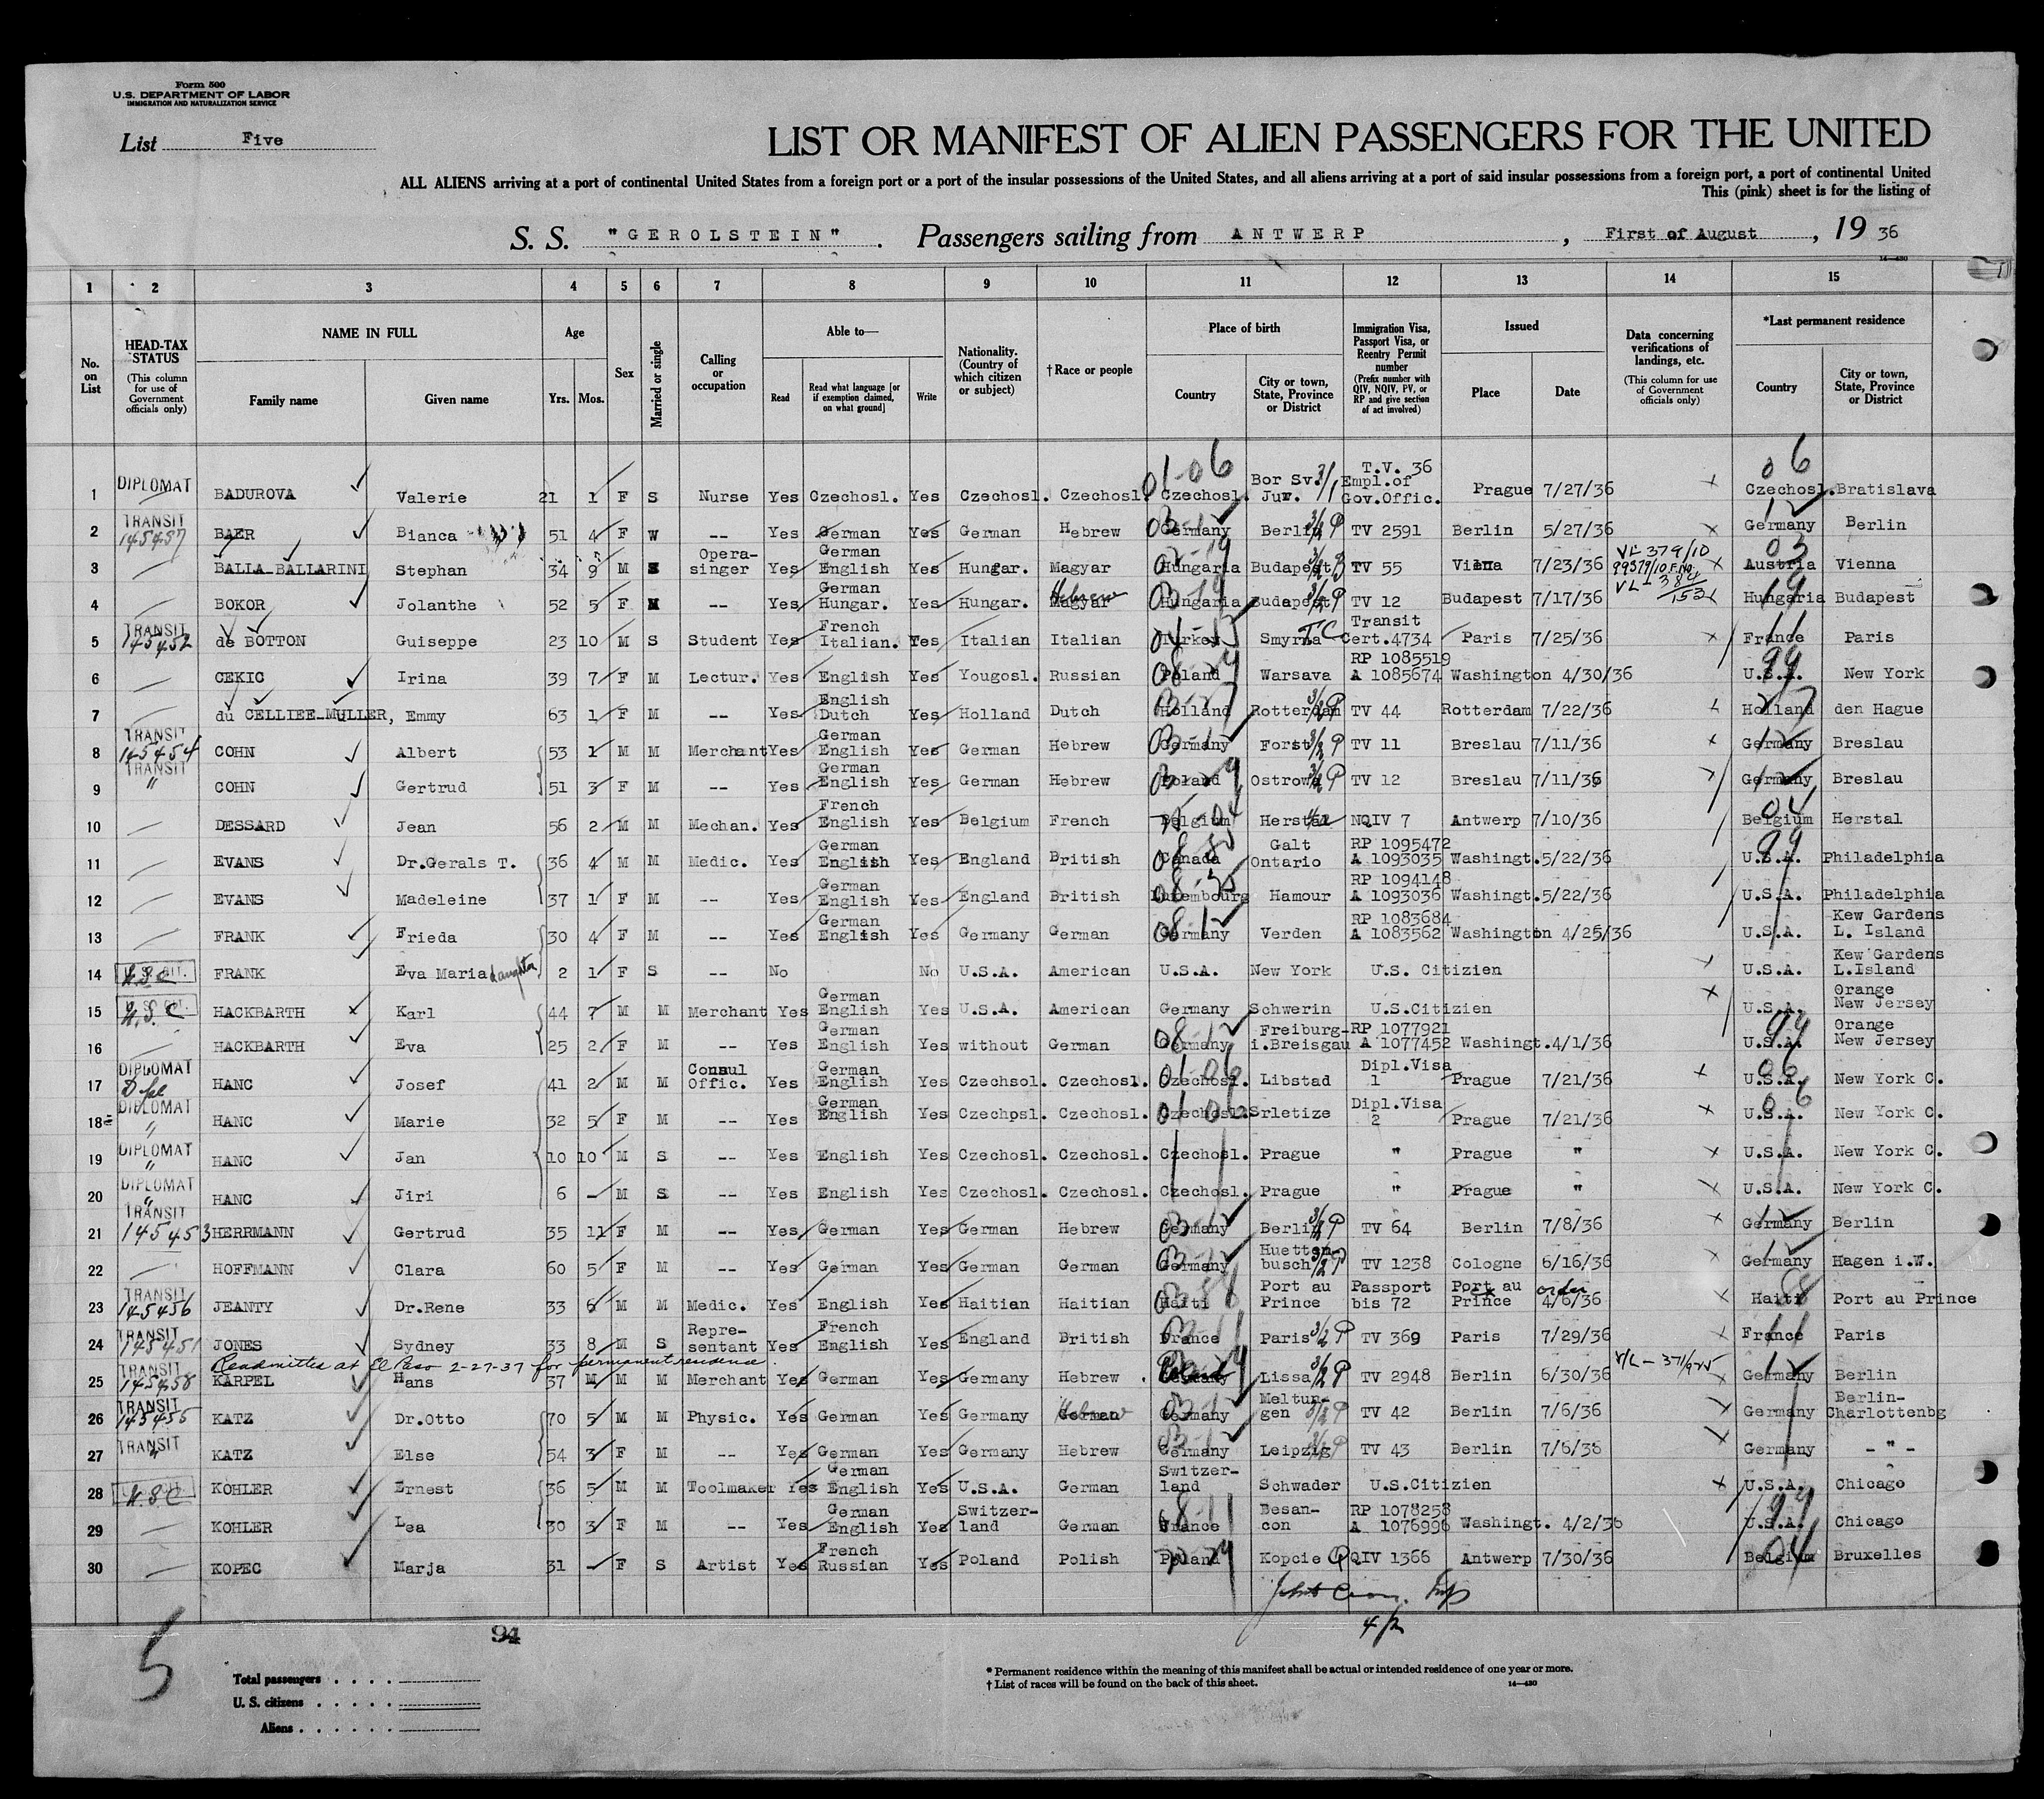 Form 500
U.S. DEPARTMENT OF LABOR
IMMIGRATION AND NATURALIZATION SERVICE
List Five
LIST OR MANIFEST OF ALIEN PASSENGERS FOR THE UNITED
ALL ALIENS arriving at a port of continental United States from a foreign port or a port of the insular possessions of the United States, and all aliens arriving at a port of said insular possessions from a foreign port, a port of continental United
This (pink) sheet is for the listing of
S. S. "GEROLSTEIN". Passengers sailing from ANTWERP, First of August, 19 36
14—430
1 2 3 4 5 6 7 8 9 10 11 12 13 14 15
No. on List
HEAD-TAX STATUS (This column for use of Government officials only)
NAME IN FULL Family name Given name
Age Yrs. Mos.
Sex
Married or single
Calling or occupation
Able to— Read Read what language [or if exemption claimed, on what ground] Write
Nationality. (Country of which citizen or subject)
†Race or people
Place of birth Country City or town, State, Province or District
Immigration Visa, Passport Visa, or Reentry Permit number (Prefix number with QIV, NQIV, PV, or RP and give section of act involved)
Issued Place Date
Data concerning verifications of landings, etc. (This column for use of Government officials only)
*Last permanent residence Country City or town, State, Province or District
1 DIPLOMAT BADUROVA Valerie 21 1 F S Nurse Yes Czechosl. Yes Czechosl. Czechosl. 01-06 Czechosl. Bor Sv. Jur. 3/1 T.V. 36 Empl.of Gov.Offic. Prague 7/27/36 06 Czechosl. Bratislava
2 TRANSIT 145457 BAER Bianca 51 4 F W -- Yes German Yes German Hebrew Germany Berlin 3/2 P TV 2591 Berlin 5/27/36 Germany Berlin
3 BALLA-BALLARINI Stephan 34 9 M S Opera-singer Yes German English Yes Hungar. Magyar Hungaria Budapest 3/2 TV 55 Vienna 7/23/36 VL 379/10 03 Austria Vienna
4 BOKOR Jolanthe 52 5 F M -- Yes German Hungar. Yes Hungar. Magyar Hebrew Hungaria Budapest 3/2 P TV 12 Budapest 7/17/36 19 Hungaria Budapest
5 TRANSIT 145452 de BOTTON Guiseppe 23 10 M S Student Yes French Italian. Yes Italian Italian Turkey Smyrna TC Transit Cert.4734 Paris 7/25/36 11 France Paris
6 CEKIC Irina 39 7 F M Lectur. Yes English Yes Yougosl. Russian Poland Warsava RP 1085519 A 1085674 Washington 4/30/36 99 U.S.A. New York
7 du CELLIEE-MULLER, Emmy 63 1 F M -- Yes English Dutch Yes Holland Dutch Holland Rotterdam 3/2 P TV 44 Rotterdam 7/22/36 27 Holland den Hague
8 TRANSIT 145454 COHN Albert 53 1 M M Merchant Yes German English Yes German Hebrew Germany Forst 3/2 P TV 11 Breslau 7/11/36 12 Germany Breslau
9 TRANSIT " COHN Gertrud 51 3 F M -- Yes German English Yes German Hebrew Poland Ostrow 3/2 P TV 12 Breslau 7/11/36 12 Germany Breslau
10 DESSARD Jean 56 2 M M Mechan. Yes French English Yes Belgium French Belgium Herstal NQIV 7 Antwerp 7/10/36 04 Belgium Herstal
11 EVANS Dr.Gerals T. 36 4 M M Medic. Yes German English Yes England British Canada Galt Ontario RP 1095472 A 1093035 Washingt. 5/22/36 99 U.S.A. Philadelphia
12 EVANS Madeleine 37 1 F M -- Yes German English Yes England British Luxembourg Hamour RP 1094148 A 1093036 Washingt. 5/22/36 U.S.A. Philadelphia
13 FRANK Frieda 30 4 F M -- Yes German English Yes Germany German 08-12 Germany Verden RP 1083684 A 1083562 Washington 4/25/36 U.S.A. Kew Gardens L. Island
14 U.S.C. FRANK Eva Maria daughter 2 1 F S -- No No U.S.A. American U.S.A. New York U.S. Citizien U.S.A. Kew Gardens L.Island
15 U.S.C. HACKBARTH Karl 44 7 M M Merchant Yes German English Yes U.S.A. American Germany Schwerin U.S.Citizien U.S.A. Orange New Jersey
16 HACKBARTH Eva 25 2 F M -- Yes German English Yes without German 08-12 Germany Freiburg-i.Breisgau RP 1077921 A 1077452 Washingt. 4/1/36 99 U.S.A. Orange New Jersey
17 DIPLOMAT Dipl HANC Josef 41 2 M M Consul Offic. Yes German English Yes Czechsol. Czechosl. 01-06 Czechosl. Libstad Dipl.Visa 1 Prague 7/21/36 06 U.S.A. New York C.
18 DIPLOMAT " HANC Marie 32 5 F M -- Yes German English Yes Czechpsl. Czechosl. 01 06 Czechosl. Srletize Dipl.Visa 2 Prague 7/21/36 06 U.S.A. New York C.
19 DIPLOMAT " HANC Jan 10 10 M S -- Yes English Yes Czechosl. Czechosl. Czechosl. Prague " Prague " U.S.A. New York C.
20 DIPLOMAT " HANC Jiri 6 - M S -- Yes English Yes Czechosl. Czechosl. Czechosl. Prague " Prague " U.S.A. New York C.
21 TRANSIT 145453 HERRMANN Gertrud 35 11 F M -- Yes German Yes German Hebrew 03-12 Germany Berlin 3/2 P TV 64 Berlin 7/8/36 12 Germany Berlin
22 HOFFMANN Clara 60 5 F M -- Yes German Yes German German Germany Huetten-busch 3/2 P TV 1238 Cologne 6/16/36 12 Germany Hagen i.W.
23 TRANSIT 145456 JEANTY Dr.Rene 33 6 M M Medic. Yes English Yes Haitian Haitian Haiti Port au Prince Passport bis 72 Port au Prince ex order 4/6/36 88 Haiti Port au Prince
24 TRANSIT 145451 JONES Sydney 33 8 M S Repre-sentant Yes French English Yes England British France Paris 3/2 P TV 369 Paris 7/29/36 11 France Paris
Readmitted at El Paso 2-27-37 for permanent residence.
25 TRANSIT 145458 KARPEL Hans 37 M M Merchant Yes German Yes Germany Hebrew Poland Lissa 3/2 P TV 2948 Berlin 6/30/36 12 Germany Berlin
26 TRANSIT 145455 KATZ Dr.Otto 70 5 M M Physic. Yes German Yes Germany German Hebrew Germany Meltun-gen 3/2 P TV 42 Berlin 7/6/36 Germany Berlin-Charlottenbg
27 TRANSIT " KATZ Else 54 3 F M -- Yes German Yes Germany Hebrew Germany Leipzig 3/2 P TV 43 Berlin 7/6/36 Germany - " -
28 U.S.C KOHLER Ernest 36 5 M M Toolmaker Yes German English Yes U.S.A. German Switzer-land Schwader U.S.Citizien U.S.A. Chicago
29 KOHLER Lea 30 3 F M -- Yes German English Yes Switzer-land German 08-11 France Besan-con RP 1078258 A 1076996 Washingt. 4/2/36 99 U.S.A. Chicago
30 KOPEC Marja 31 - F S Artist Yes French Russian Yes Poland Polish Poland Kopcie QIV 1366 Antwerp 7/30/36 04 Belgium Bruxelles
94
5
Total passengers
U. S. citizens
Aliens
* Permanent residence within the meaning of this manifest shall be actual or intended residence of one year or more.
† List of races will be found on the back of this sheet.
14—430